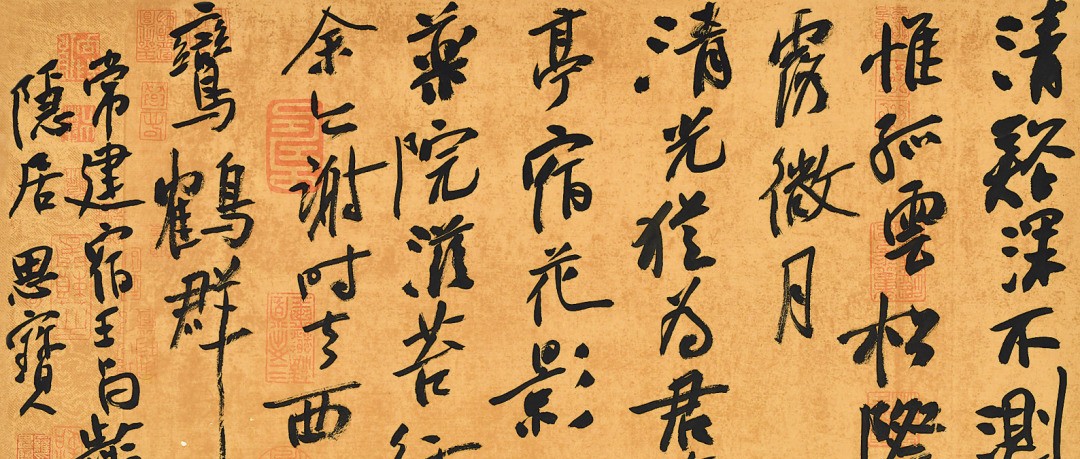 清谿深不測
惟孤雲松際
露微月
清光猶為君
亭宿花影
藥院滋苔
余亦謝时去西
鸞鶴群
常建宿王昌齡
隱居 思寶